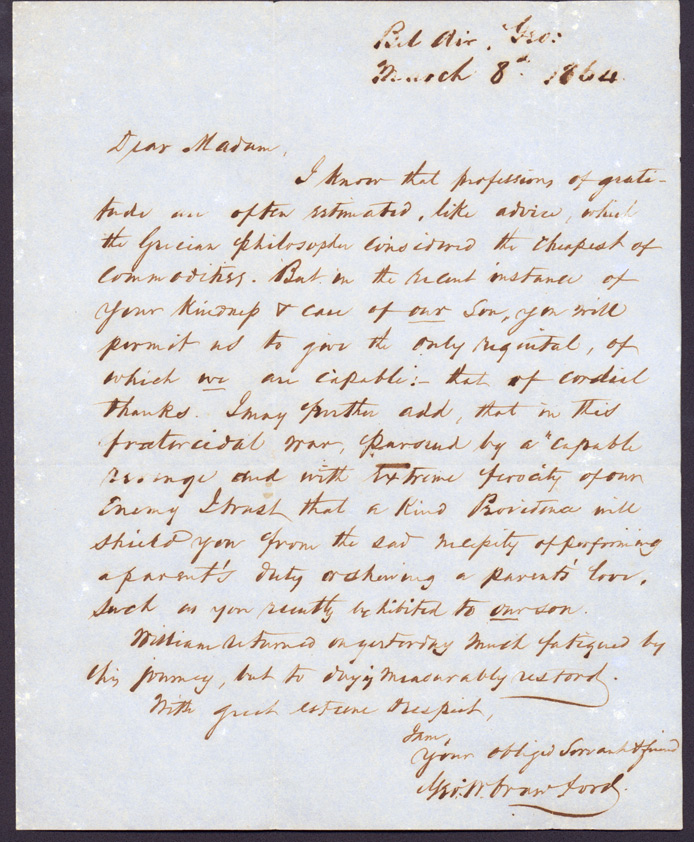 Bel Air, Geo:
March 8d. 1864
Dear Madam,
I know that professions of grati-
tude are often estimated, like advice, which
the Grecian philosopher considered the cheapest of
commodities. But in the recent instance of
your kindness & care of our Son, you will
permit us to give the only requital, of
which we are capable:- that of cordial
thanks. I may further add, that in this
fratercidal war, pursued by a "capable
revenge and with Extreme ferocity of our
Enemy I trust that a kind Providence will
shield you from the sad necessity of performing
a parent's duty or shewing a parents' love,
such as you recently exhibited to our son.
William returned on yesterday much fatigued by
his journey, but to day is measurably restored.
With great esteem & respect,
I am,
Your obliged Servant & friend
Geo. W. Crawford.